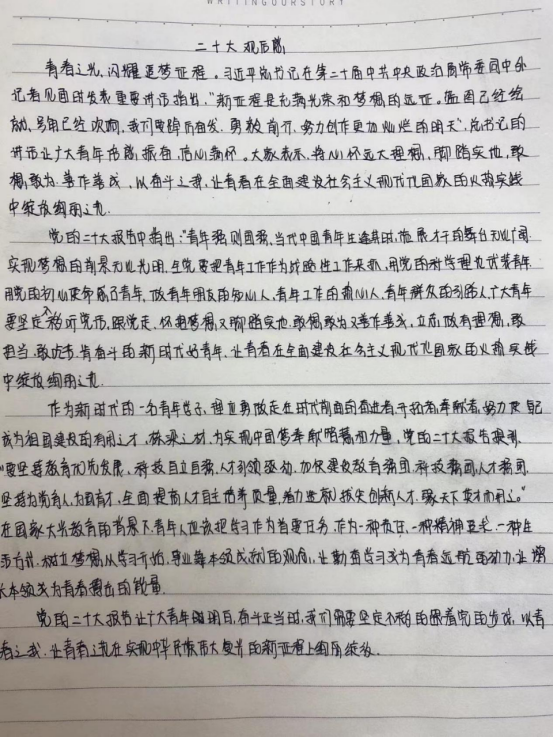 WRITINGOURSTORY
二十大观后感
青春之光，闪耀逐梦征程。习近平总书记在第二十届中共中央政治局常委同中外
记者见面时发表重要讲话指出，“新征程是充满光荣和梦想的远征。蓝图已经绘
就，号角已经吹响。我们要踔厉奋发、勇毅前行，努力创作更加灿烂的明天”，总书记的
讲话让广大青年倍感振奋，信心满怀。大家表示，将心怀远大理想，脚踏实地，敢
想敢为善作善成，以奋斗之我，让青春在全面建设社会主义现代化国家的火热实践
中绽放绚丽之花。
党的二十大报告中指出：“青年强，则国强，当代中国青年生逢其时，施展才干的舞台无比广阔，
实现梦想的前景无比光明。全党要把青年工作作为战略性工作来抓，用党的科学理论武装青年，
用党的初心使命感召青年，做青年朋友的知心人，青年工作的热心人，青年群众的引路人。”广大青年
要坚定不移听党话，跟党走，怀抱梦想又脚踏实地，敢想敢为又善作善成，立志做有理想、敢
担当、能吃苦、肯奋斗的新时代好青年，让青春在全面建设社会主义现代化国家的火热实践
中绽放绚丽之花。
作为新时代的一名青年学子，理应勇做走在时代前面的奋进者、开拓者、奉献者，努力使自己
成为祖国建设的有用之才、栋梁之材，为实现中国梦奉献智慧和力量，党的二十大报告提到，
“要坚持教育优先发展、科技自立自强、人才引领驱动，加快建设教育强国、科技强国、人才强国，
坚持为党育人、为国育才，全面提高人才自主培养质量，着力造就拔尖创新人才，聚天下英才而用之。”
在国家大兴教育的背景下，青年人应该把学习作为首要任务，作为一种责任、一种精神追求、一种生
活方式，树立梦想从学习开始，事业靠本领成就的观念，让勤奋学习成为青春远航的动力，让增
长本领成为青春搏击的能量。
党的二十大报告让广大青年做明白，奋斗正当时，我们需要坚定不移的跟着党的步伐，以青
春之我，让青春之花在实现中华民族伟大复兴的新征程上绚丽绽放。